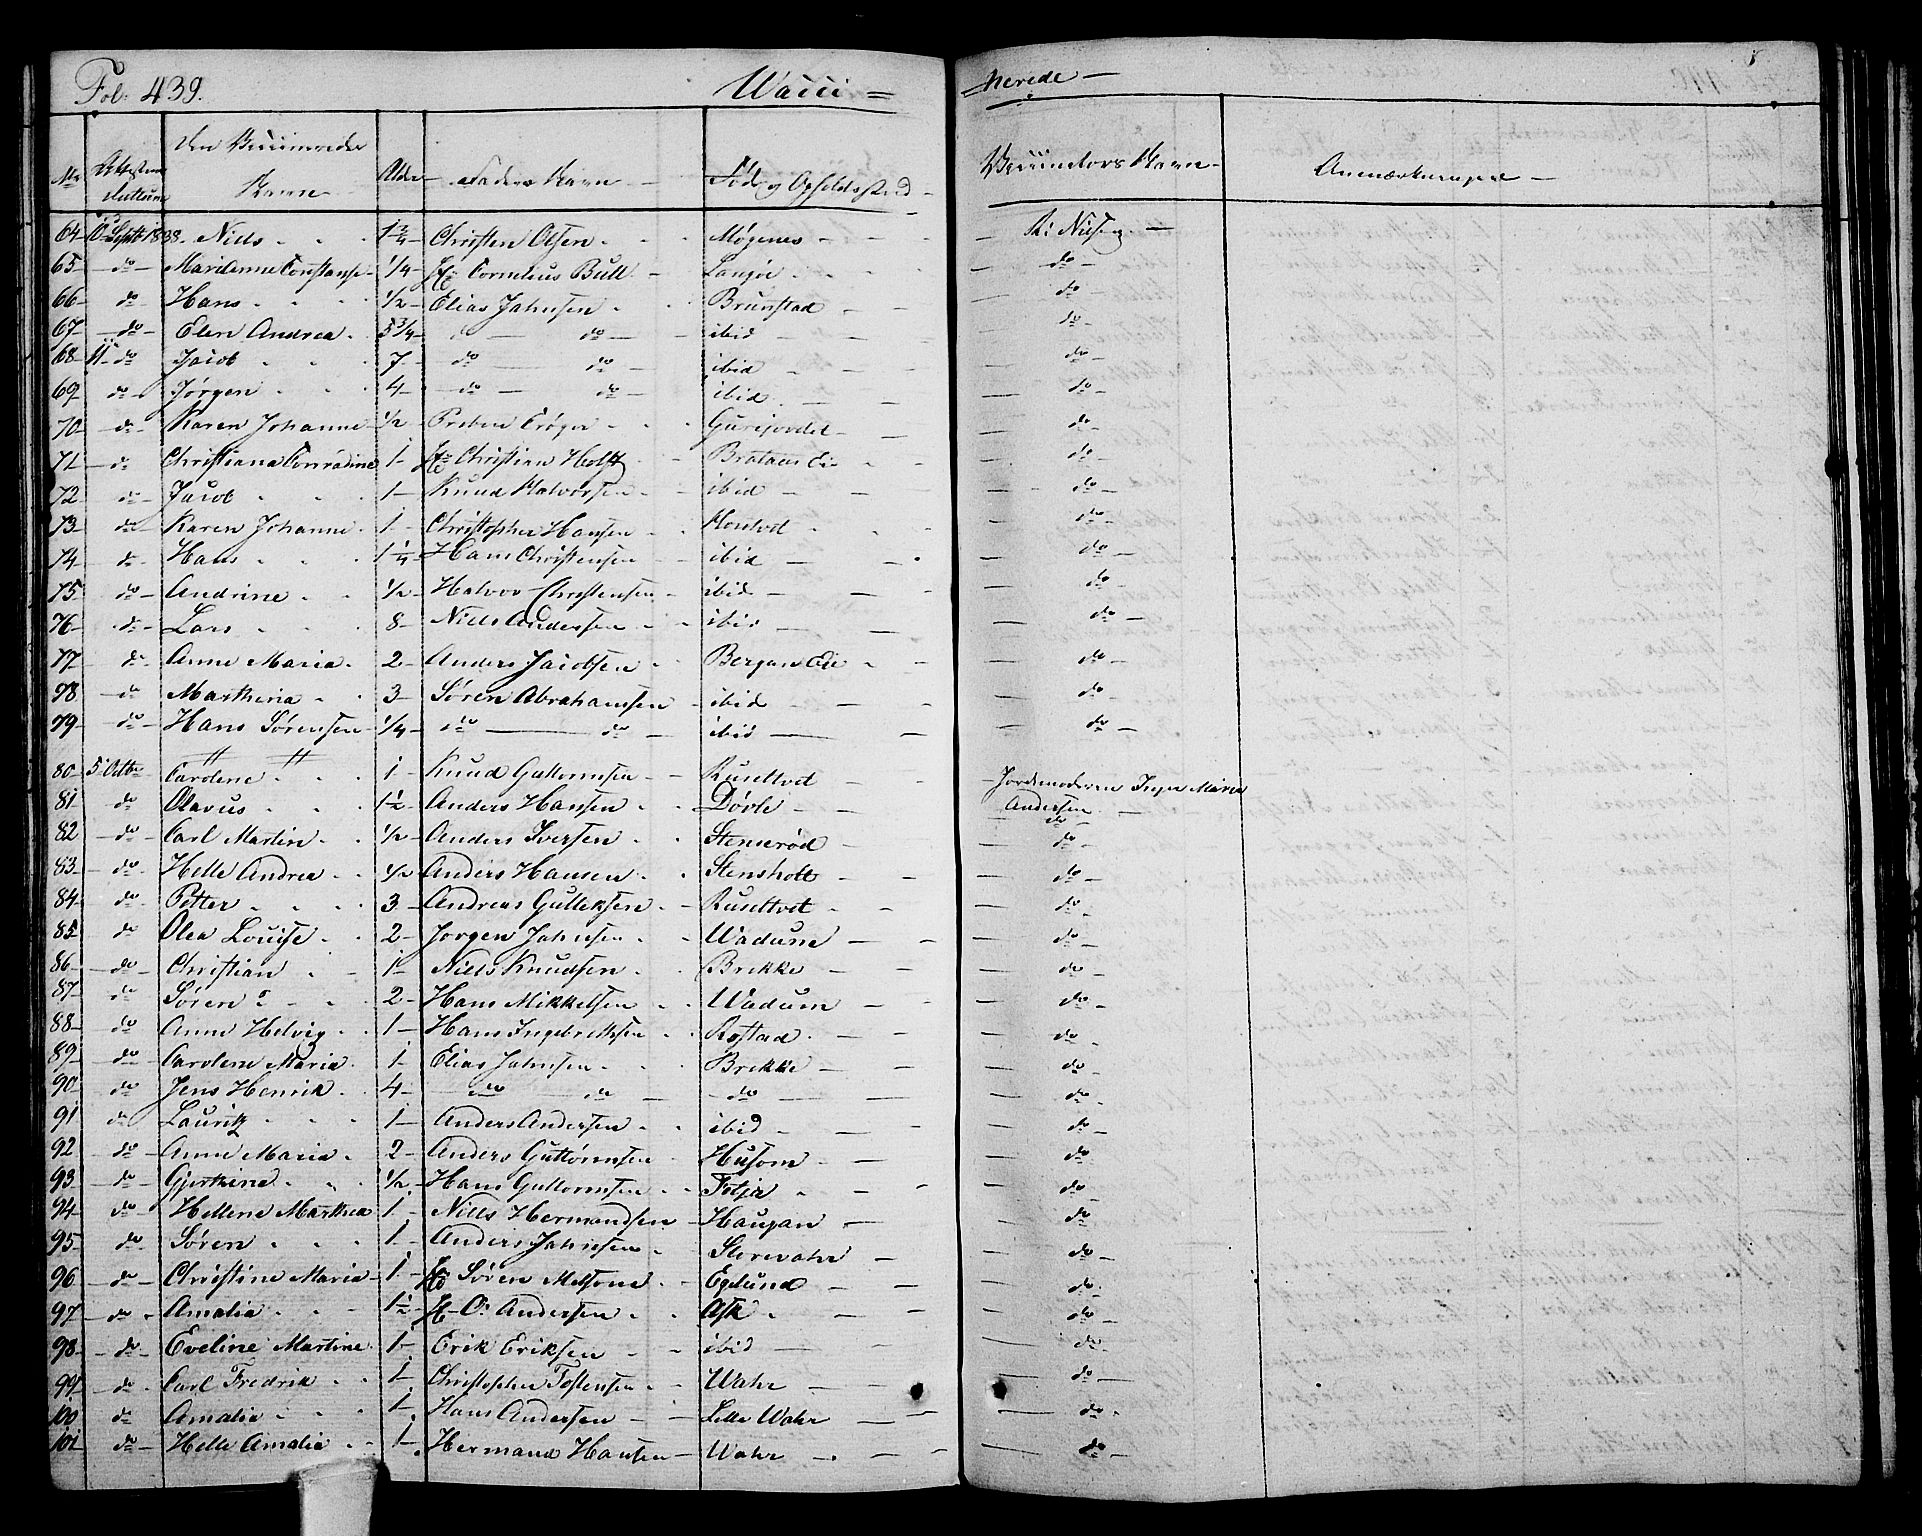 Fol: 439. Wacci= =nerede —
No Attestens Datum den Vaccineredes Navn Alder Faders Navn Føde og Opholdssted Vaccinators Navn Anmærkninger
64 10 Septb 1838. Niels 1 3/4 Christen Olsen Møgenes R: Nilsen
65 do Marilenne Constanse 1/4 Hr Cornelius Bull Langøe do
66 do Hans 1/2 Elias Jahnsen Brunstad do
67 do Elen Andrea 5 3/4 do do ibid do
68 11 do Jacob 7 do do ibid do
69 do Jørgen 4 do do ibid do
70 do Karen Johanne 1/2 Preben Crøger do
71 do Christiana Conradine 1 Hr Christian Holst Brataas Eie do
72 do Jacob 1 Knud Halvorsen ibid do
73 do Karen Johanne 1 Christopher Hansen do
74 do Hans 1 1/4 Hans Christensen ibid do
75 do Andrine 1/2 Halvor Christensen ibid do
76 do Lars 8 Niels Andersen ibid do
77 do Anne Maria 2 Anders Jacobsen Bergan Eie do
78 do Marthina 3 Søren Abrahamsen ibid do
79 do Hans Sørensen 1/4 do do ibid do
80 5 Octbr Carolene 1 Knud Guttormsen Ruseltvet Jordemoderen Inger Maria Andersen
81 do Olavus 1 1/2 Anders Hansen Døvle do
82 do Carl Martin 1/2 Anders Iversen Stenserød do
83 do Helle Andrea 1/2 Anders Hansen Stensholt do
84 do Petter 3 Andreas Gulleksen Ruseltvet do
85 do Olea Louise 2 Jørgen Jahnsen Wadum do
86 do Christian 1 Niels Knudsen Brekke do
87 do Søren 2 Hans Mikkelsen Wadum do
88 do Anne Helvig 1 Hans Ingebrethsen Rostad do
89 do Carolene Maria 1 Elias Jahnsen Brekke do
90 do Jens Henrik 4 do do do do
91 do Lauritz 1 Anders Andersen ibid do
92 do Anne Maria 2 Anders Guttormsen Husom do
93 do Gjerthine 1/2 Hans Guttormsen Folja do
94 do Hellene Marthea 1 Niels Hermandsen Haugan do
95 do Søren 1 Anders Jahnsen Storevahr do
96 do Christine Maria 1 Hr Søren Melsom Eglund do
97 do Amalia 1 1/2 H. O: Andersen Ask do
98 do Eveline Martine 1 Erik Eriksen ibid do
99 do Carl Fredrik 1 Christopher Tostensen Wahr do
100 do Amalia 1 Hans Andersen Lille Wahr do
101 do Helle Amalia 1 Hermand Hansen Wahr do